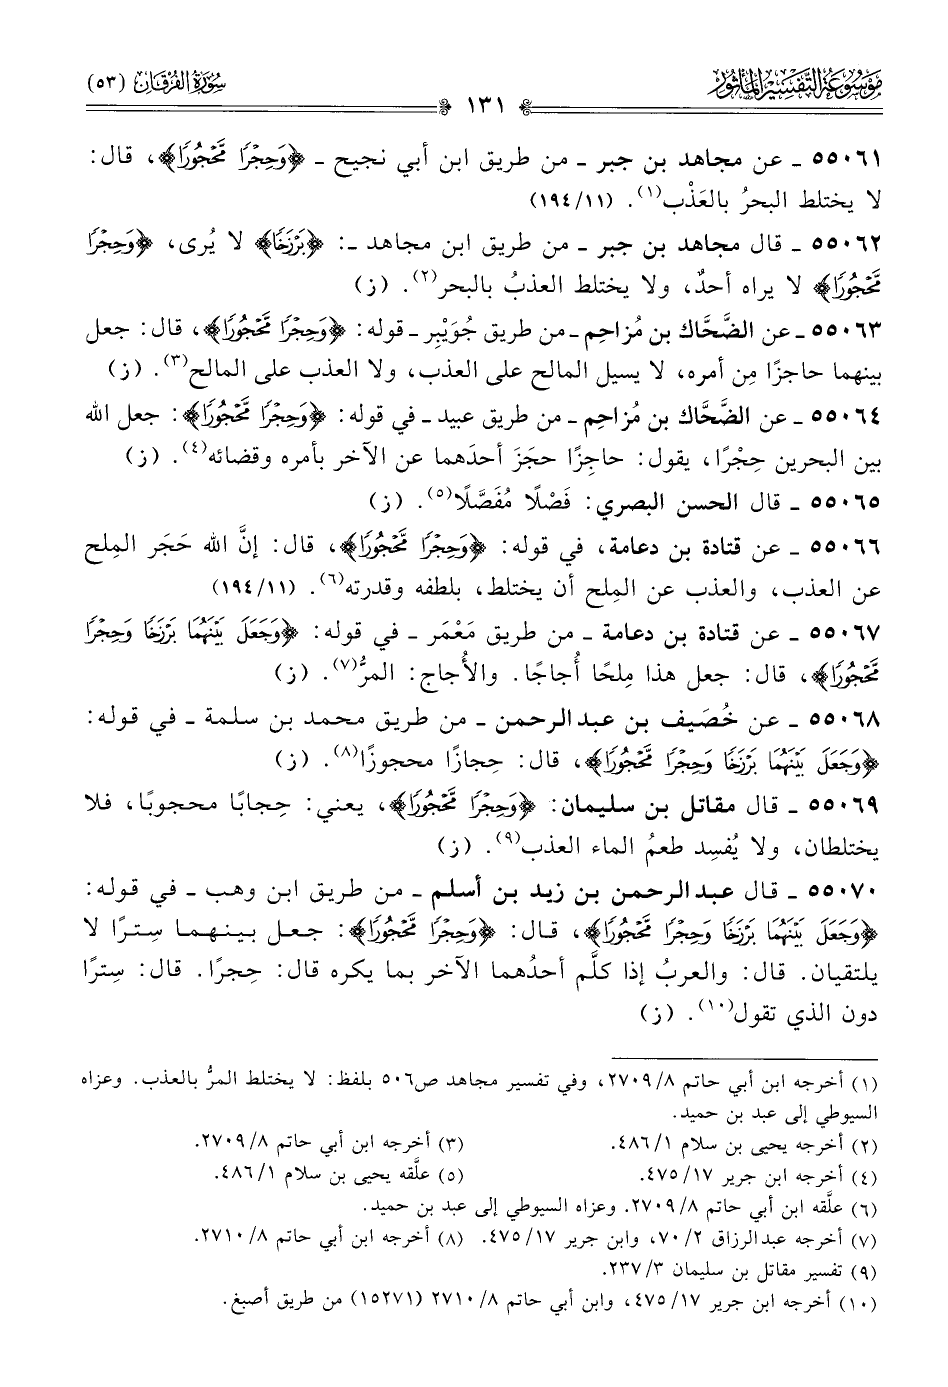 موسوعة التفسير المأثور
سورة الفرقان (٥٣)
١٣١
٥٥٠٦١ ـ عن مجاهد بن جبر ـ من طريق ابن أبي نجيح ـ ﴿وَحِجْرًا مَّحْجُورًا﴾، قال:
لا يختلط البحرُ بالعَذْب(١). (١٩٤/١١)
٥٥٠٦٢ ـ قال مجاهد بن جبر ـ من طريق ابن مجاهد ـ: ﴿بَرْزَخًا﴾ لا يُرى، ﴿وَحِجْرًا
مَّحْجُورًا﴾ لا يراه أحدٌ، ولا يختلط العذبُ بالبحر(٢). (ز)
٥٥٠٦٣ ـ عن الضَّحَّاك بن مُزاحِم ـ من طريق جُوَيْبِر ـ قوله: ﴿وَحِجْرًا مَّحْجُورًا﴾، قال: جعل
بينهما حاجزًا مِن أمره، لا يسيل المالح على العذب، ولا العذب على المالح(٣). (ز)
٥٥٠٦٤ ـ عن الضَّحَّاك بن مُزاحِم ـ من طريق عبيد ـ في قوله: ﴿وَحِجْرًا مَّحْجُورًا﴾: جعل الله
بين البحرين حِجْرًا، يقول: حاجِزًا حجَزَ أحدَهما عن الآخر بأمره وقضائه(٤). (ز)
٥٥٠٦٥ ـ قال الحسن البصري: فَصْلًا مُفَصَّلًا(٥). (ز)
٥٥٠٦٦ ـ عن قتادة بن دعامة، في قوله: ﴿وَحِجْرًا مَّحْجُورًا﴾، قال: إنَّ الله حَجَر المِلح
عن العذب، والعذب عن المِلح أن يختلط، بلطفه وقدرته(٦). (١٩٤/١١)
٥٥٠٦٧ ـ عن قتادة بن دعامة ـ من طريق مَعْمَر ـ في قوله: ﴿وَجَعَلَ بَيْنَهُمَا بَرْزَخًا وَحِجْرًا
مَّحْجُورًا﴾، قال: جعل هذا مِلحًا أُجاجًا. والأُجاج: المرُّ(٧). (ز)
٥٥٠٦٨ ـ عن خُصَيف بن عبد الرحمن ـ من طريق محمد بن سلمة ـ في قوله:
﴿وَجَعَلَ بَيْنَهُمَا بَرْزَخًا وَحِجْرًا مَّحْجُورًا﴾، قال: حِجازًا محجوزًا(٨). (ز)
٥٥٠٦٩ ـ قال مقاتل بن سليمان: ﴿وَحِجْرًا مَّحْجُورًا﴾، يعني: حِجابًا محجوبًا، فلا
يختلطان، ولا يُفسِد طعمُ الماء العذب(٩). (ز)
٥٥٠٧٠ ـ قال عبد الرحمن بن زيد بن أسلم ـ من طريق ابن وهب ـ في قوله:
﴿وَجَعَلَ بَيْنَهُمَا بَرْزَخًا وَحِجْرًا مَّحْجُورًا﴾، قال: ﴿وَحِجْرًا مَّحْجُورًا﴾: جعل بينهما سِترًا لا
يلتقيان. قال: والعربُ إذا كلَّم أحدُهما الآخر بما يكره قال: حِجرًا. قال: سِترًا
دون الذي تقول(١٠). (ز)
(١) أخرجه ابن أبي حاتم ٢٧٠٩/٨، وفي تفسير مجاهد ص٥٠٦ بلفظ: لا يختلط المرُّ بالعذب. وعزاه
السيوطي إلى عبد بن حميد.
(٢) أخرجه يحيى بن سلام ٤٨٦/١. (٣) أخرجه ابن أبي حاتم ٢٧٠٩/٨.
(٤) أخرجه ابن جرير ٤٧٥/١٧. (٥) علَّقه يحيى بن سلام ٤٨٦/١.
(٦) علَّقه ابن أبي حاتم ٢٧٠٩/٨. وعزاه السيوطي إلى عبد بن حميد.
(٧) أخرجه عبد الرزاق ٧٠/٢، وابن جرير ٤٧٥/١٧. (٨) أخرجه ابن أبي حاتم ٢٧١٠/٨.
(٩) تفسير مقاتل بن سليمان ٢٣٧/٣.
(١٠) أخرجه ابن جرير ٤٧٥/١٧، وابن أبي حاتم ٢٧١٠/٨ (١٥٢٧١) من طريق أصبغ.